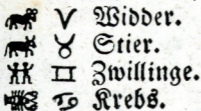 ♈ Widder.
♉ Stier.
♊ Zwillinge.
♋ Krebs.